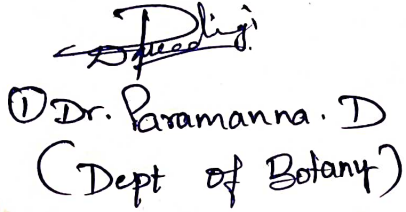 ① Dr. Paramanna. D
(Dept of Botany)